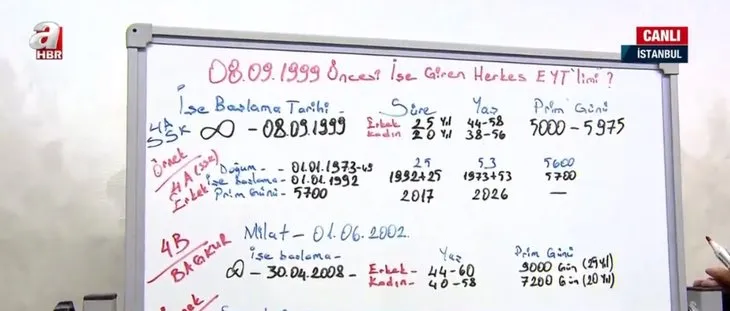 a
HBR
CANLI
İSTANBUL
08.09.1999 Öncesi İşe Giren Herkes EYT'limi?
İşe Başlama Tarihi - Süre Yaş Prim Günü
4A SSK ∞ - 08.09.1999 Erkek 25 Yıl 44-58 5000-5975
Kadın 20 Yıl 38-56
Örnek
4A (SSK) Erkek
Doğum - 01.01.1973-49 25 53 5600
İşe başlama - 01.01.1992 1992+25 1973+53 5700
Prim Günü - 5700 2017 2026 —
4B BAĞKUR
Milat - 01.06.2002.
İşe başlama - Yaş Prim Günü
∞ - 30.04.2008 - Erkek - 44-60 9000 Gün (25 Yıl)
Kadın - 40-58 7200 Gün (20 Yıl)